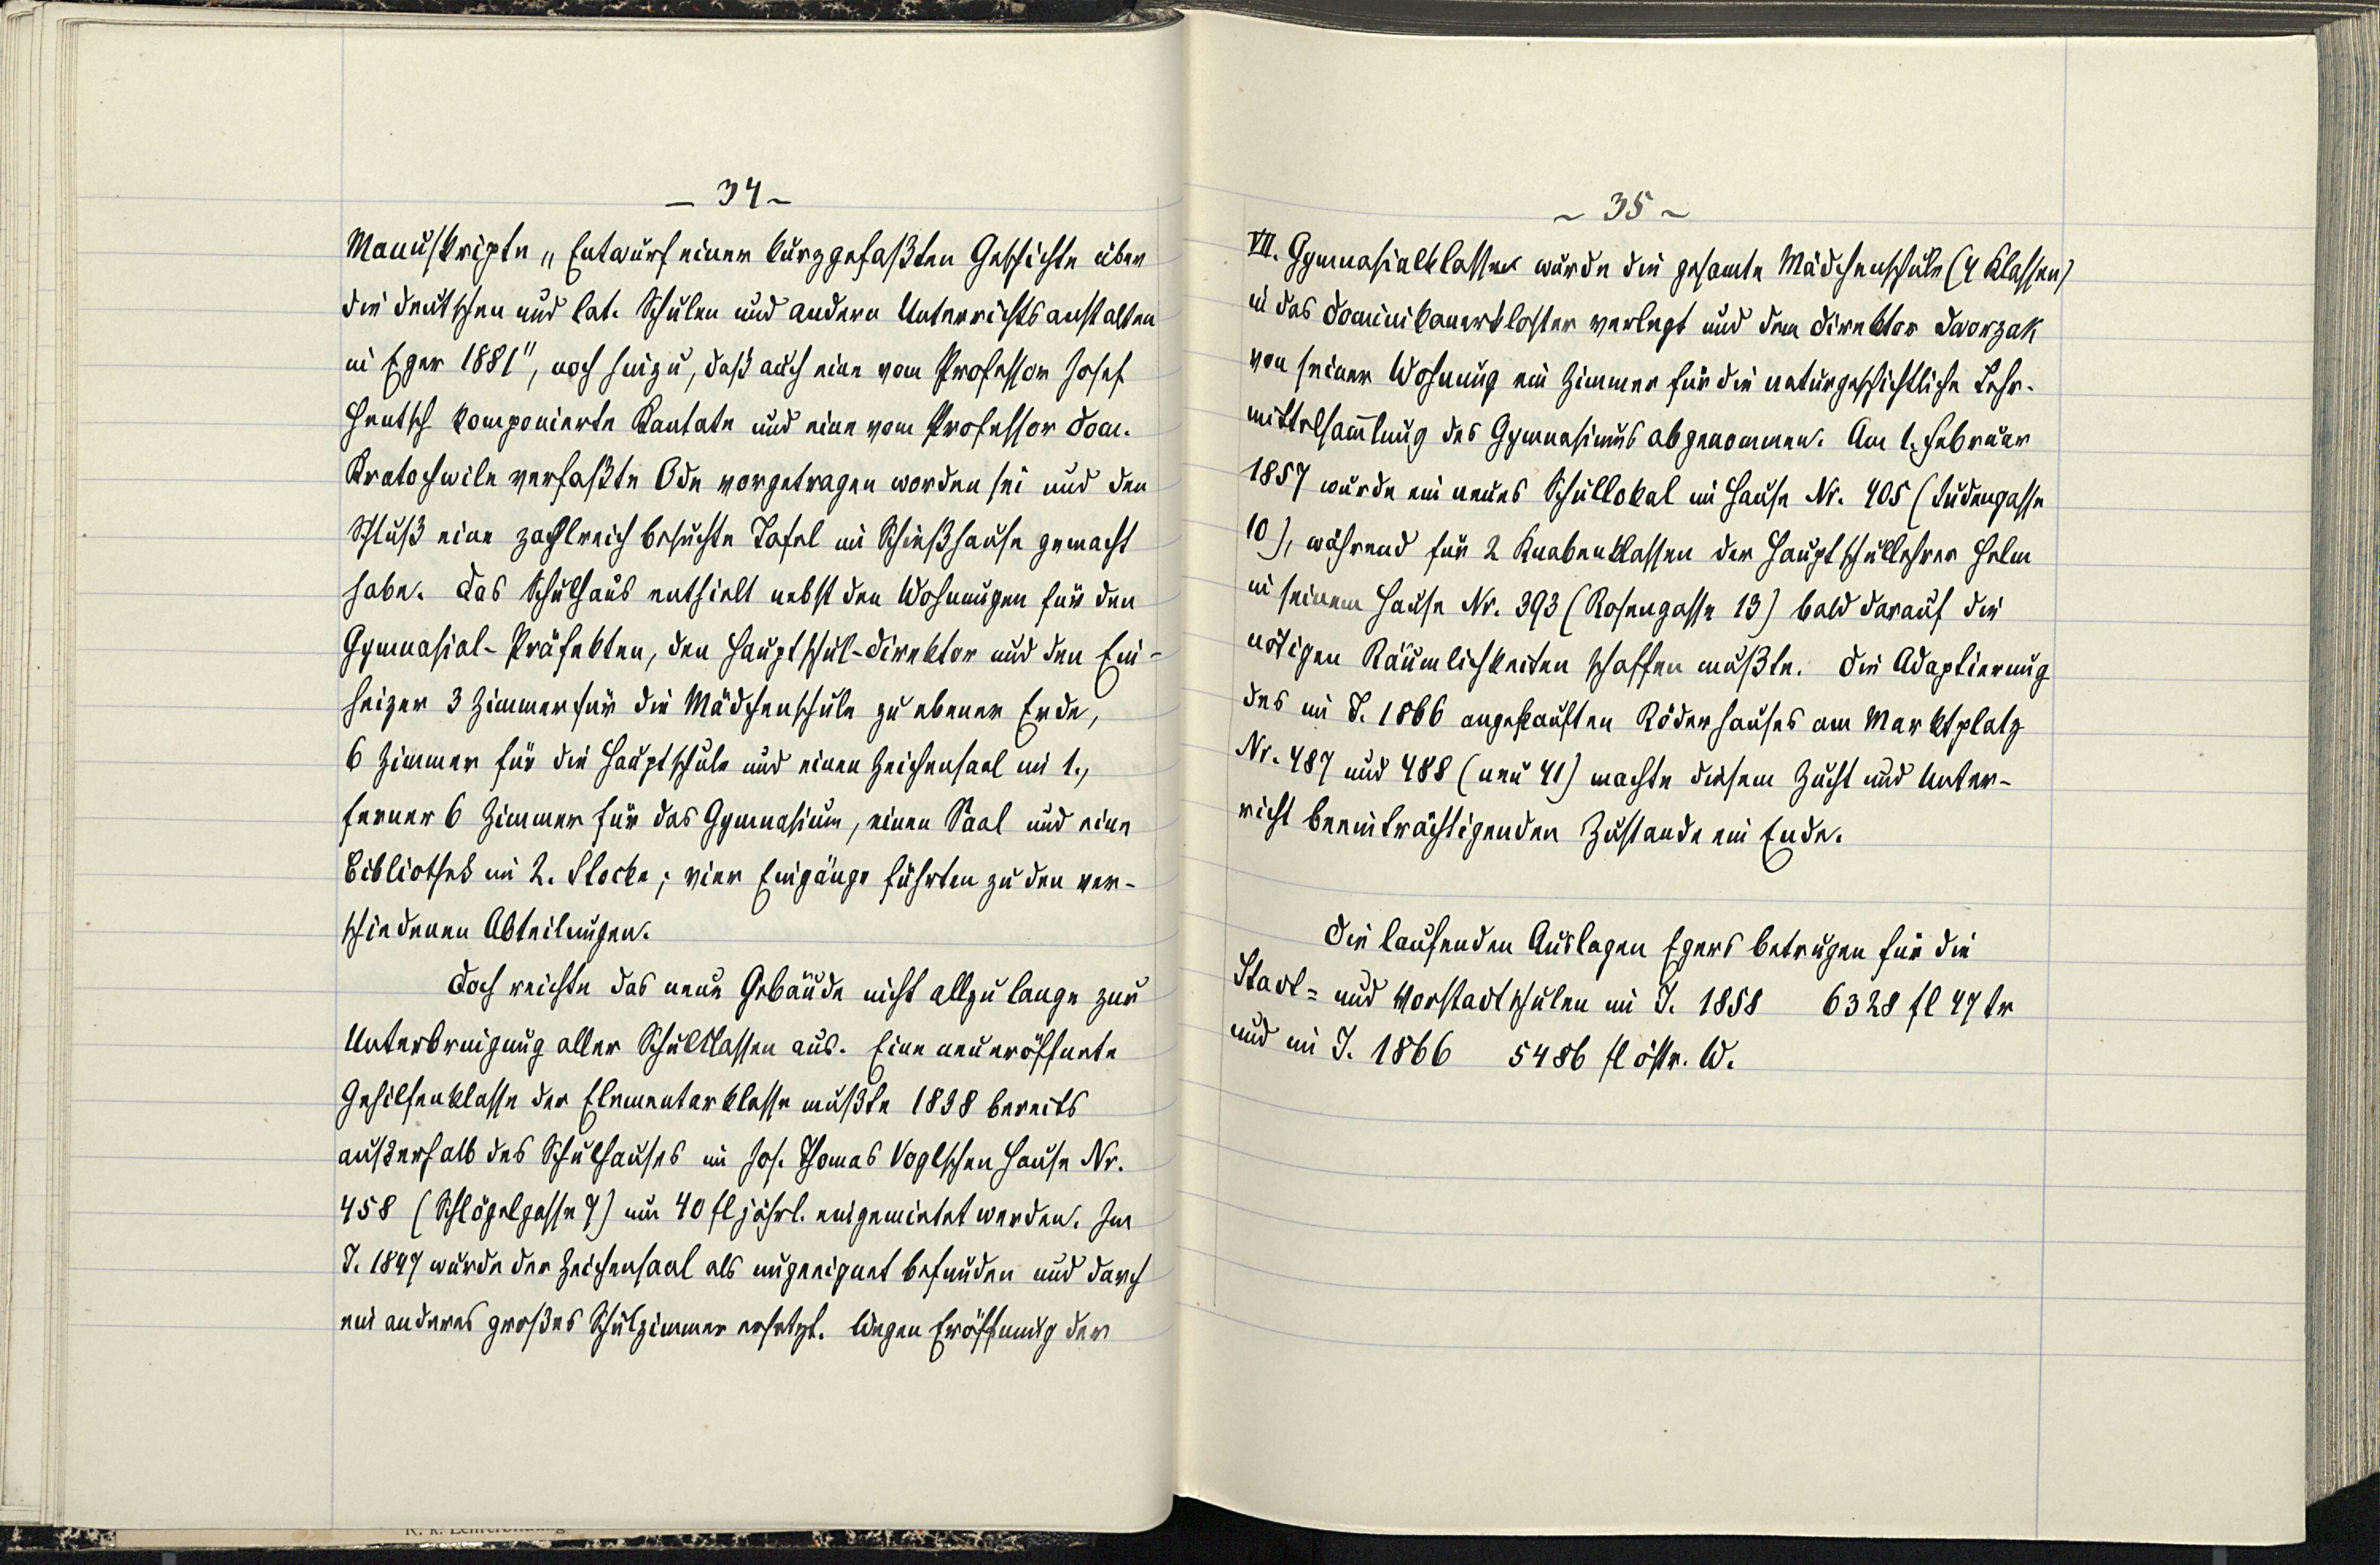 – 34 –
Manuskripte „Entwurf einer kurzgefaßten Geschichte über
die deutschen und lat. Schulen und andern Unterrichtsanstalten
in Eger 1881", noch hinzu, daß auch eine vom Professor Josef
Hentsch komponierte Kantate und eine vom Professor Dom.
Kratochwile verfaßte Ode vorgetragen worden sei und den
Schluß eine zahlreich besuchte Tafel im Schießhause gemacht
habe. Das Schulhaus enthielt nebst den Wohnungen für den
Gymnasial-Präfekten, den Hauptschul-Direktor und den Ein-
heizer 3 Zimmer für die Mädchenschule zu ebener Erde,
6 Zimmer für die Hauptschule und einen Zeichensaal im 1.,
ferner 6 Zimmer für das Gymnasium, einen Saal und eine
Bibliothek im 2. Stocke; vier Eingänge führten zu den ver-
schiedenen Abteilungen.
Doch reichte das neue Gebäude nicht allzulange zur
Unterbringung aller Schulklassen aus. Eine neueröffnete
Gehilfenklasse der Elementarklasse mußte 1838 bereits
außerhalb des Schulhauses im Jos. Thomas Voglschen Hause Nr.
458 (Schlögelgasse 9) um 40 fl jährl. eingemietet werden. Im
J. 1847 wurde der Zeichensaal als ungeeignet befunden und durch
ein anderes großes Schulzimmer ersetzt. Wegen Eröffnung der
~ 35 ~
VII. Gymnasialklassen wurde die gesamte Mädchenschule (4 Klassen)
in das Dominikanerkloster verlegt und dem Direktor Dworzak
von seiner Wohnung ein Zimmer für die naturgeschichtliche Lehr-
mittelsam̅lung des Gymnasiums abgenommen. Am 1. Februar
1857 wurde ein neues Schullokal im Hause Nr. 405 (Judengasse
10), während für 2 Knabenklassen der Hauptschullehrer Helm
in seinem Hause Nr. 393 (Rosengasse 13) bald darauf die
nötigen Räumlichkeiten schaffen mußte. Die Adaptierung
des im J. 1866 angekauften Röderhauses am Marktplatz
Nr. 487 und 488 (neu 41) machte diesem Zucht und Unter-
richt beeinträchtigenden Zustande ein Ende.
Die laufenden Auslagen Egers betrugen für die
Stadt= und Vorstadtschulen im J. 1858 6328 fl 47 kr
und im J. 1866 5486 fl östr. W.